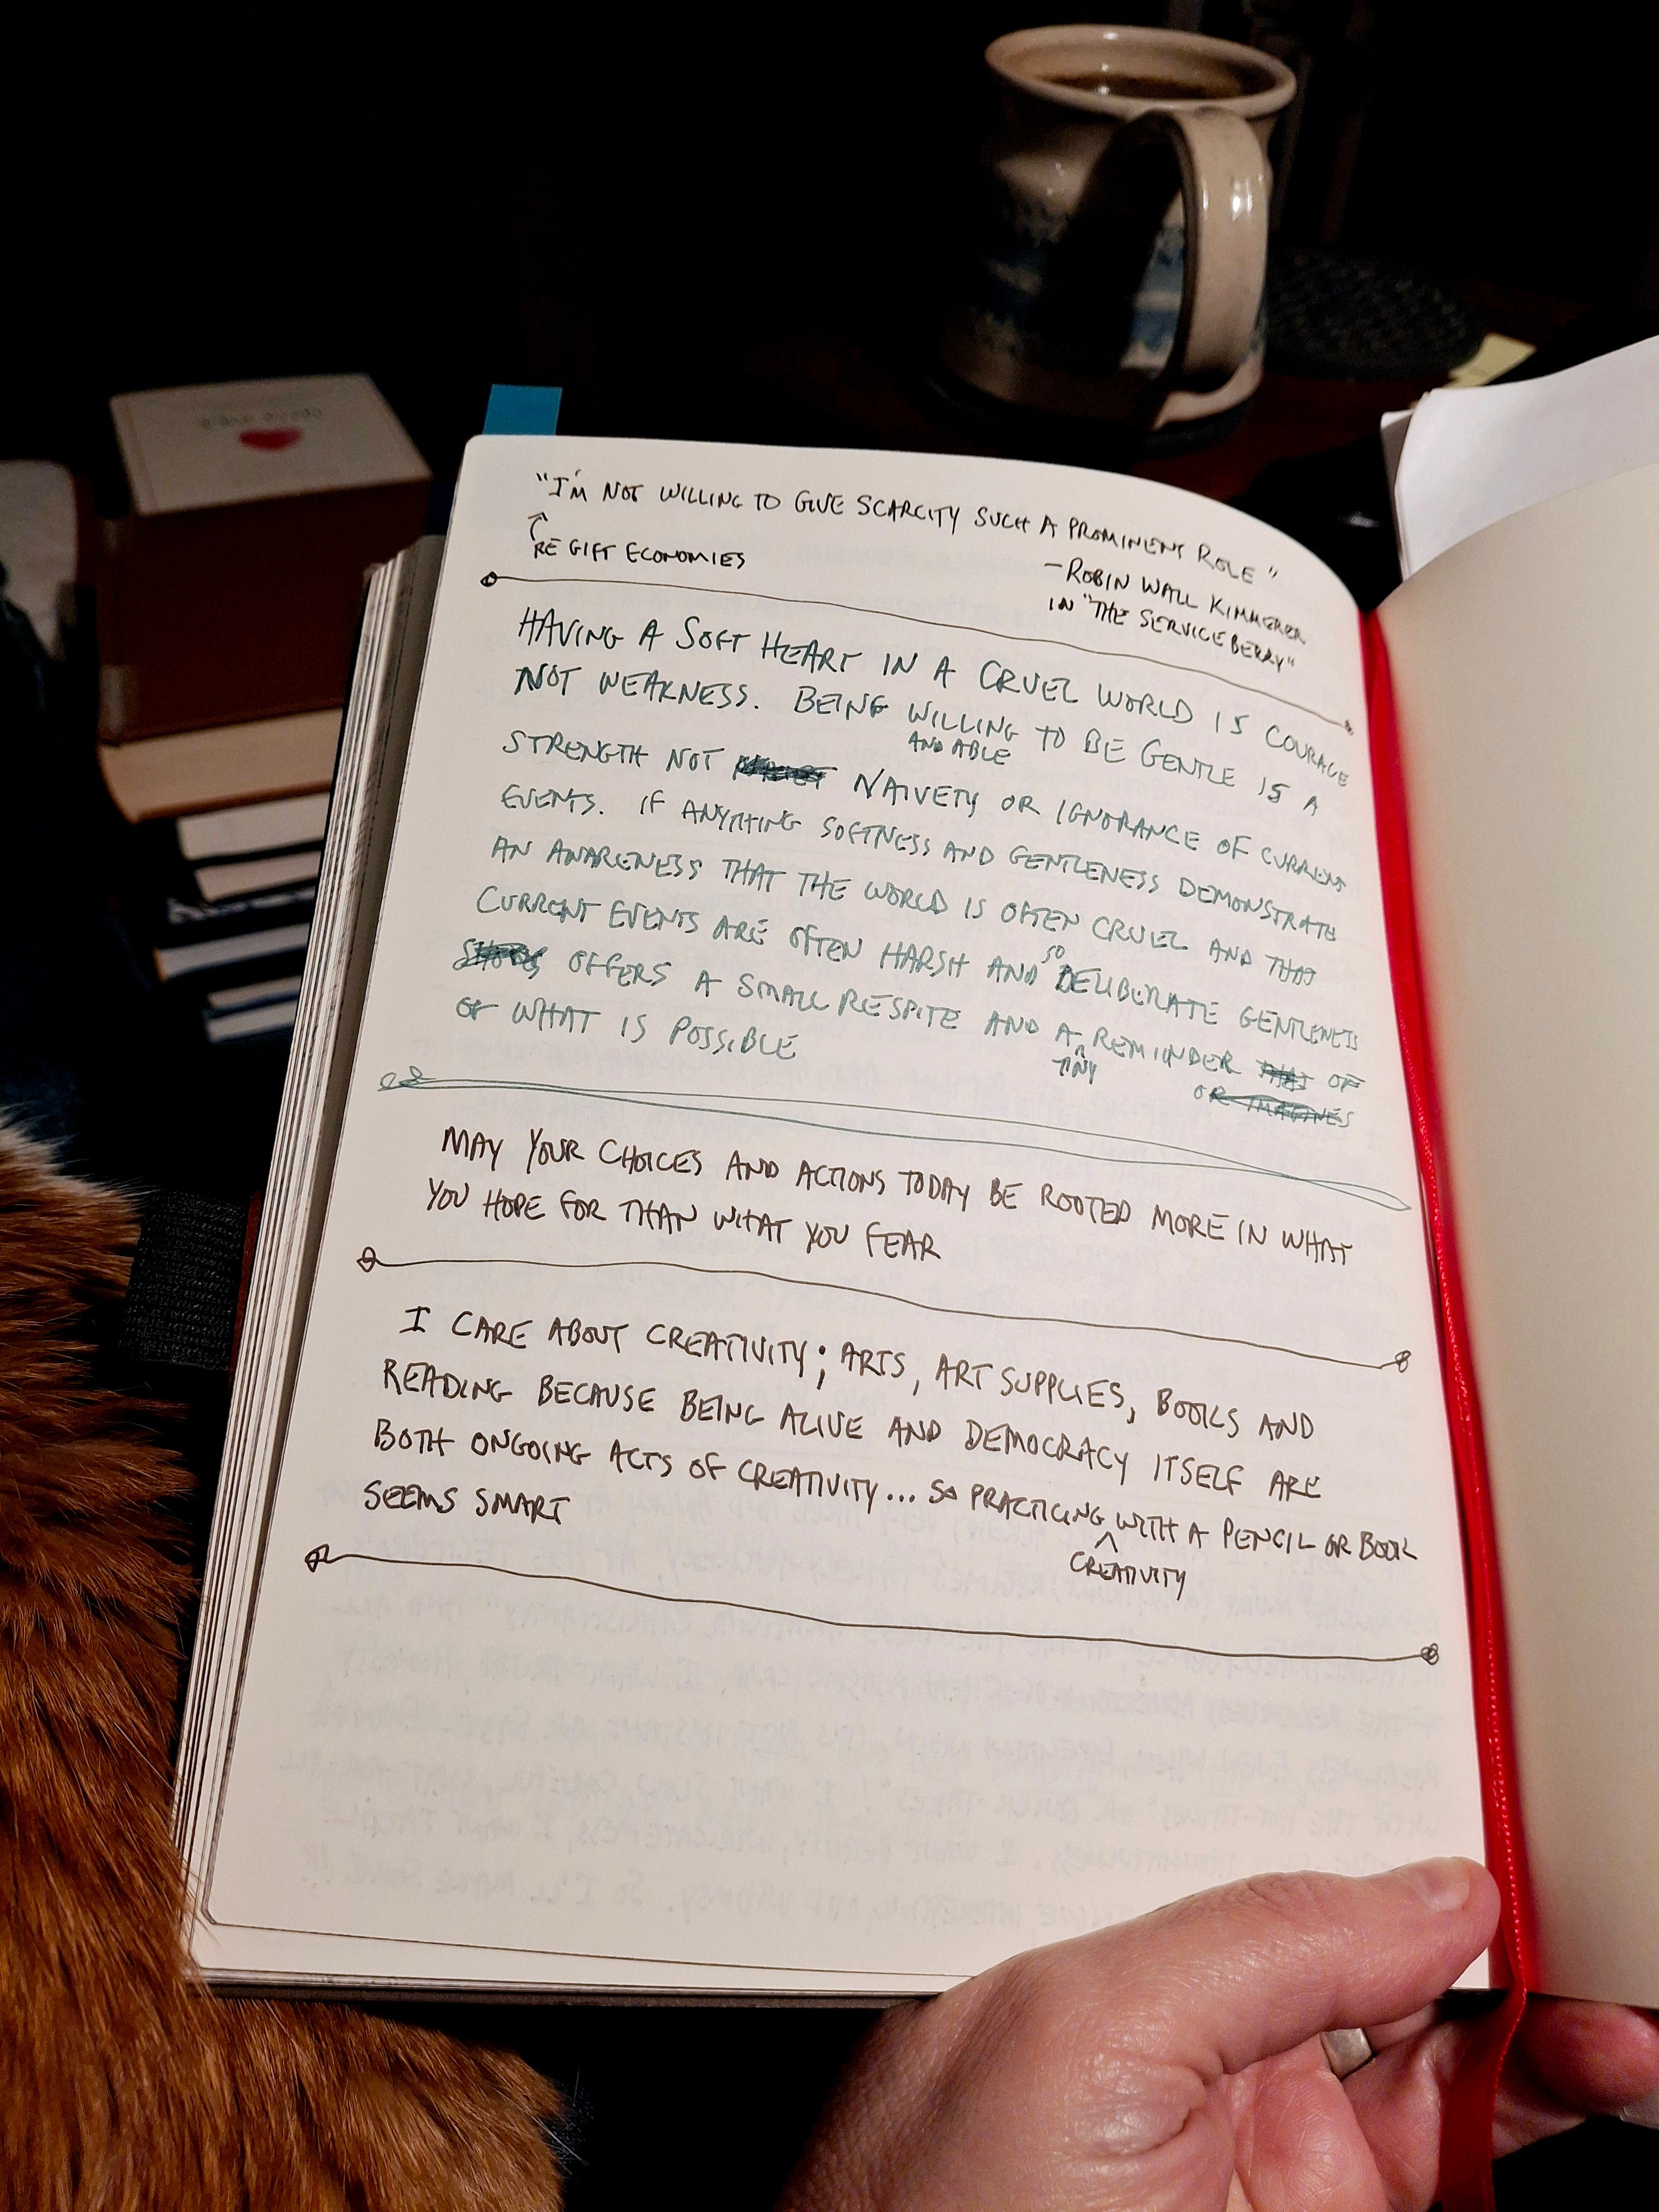 "I'M NOT WILLING TO GIVE SCARCITY SUCH A PROMINENT ROLE"
RE GIFT ECONOMIES
- ROBIN WALL KIMMERER
IN "THE SERVICEBERRY"
HAVING A SOFT HEART IN A CRUEL WORLD IS COURAGE
NOT WEAKNESS. BEING WILLING TO BE GENTLE IS A
AND ABLE
STRENGTH NOT NAIVETY OR IGNORANCE OF CURRENT
EVENTS. IF ANYTHING SOFTNESS AND GENTLENESS DEMONSTRATE
AN AWARENESS THAT THE WORLD IS OFTEN CRUEL AND THAT
CURRENT EVENTS ARE OFTEN HARSH AND SO DELIBERATE GENTLENESS
OFFERS A SMALL RESPITE AND A REMINDER THAT OF
TINY
OR IMAGINES
OF WHAT IS POSSIBLE
MAY YOUR CHOICES AND ACTIONS TODAY BE ROOTED MORE IN WHAT
YOU HOPE FOR THAN WHAT YOU FEAR
I CARE ABOUT CREATIVITY; ARTS, ART SUPPLIES, BOOKS AND
READING BECAUSE BEING ALIVE AND DEMOCRACY ITSELF ARE
BOTH ONGOING ACTS OF CREATIVITY... SO PRACTICING WITH A PENCIL OR BOOK
CREATIVITY
SEEMS SMART